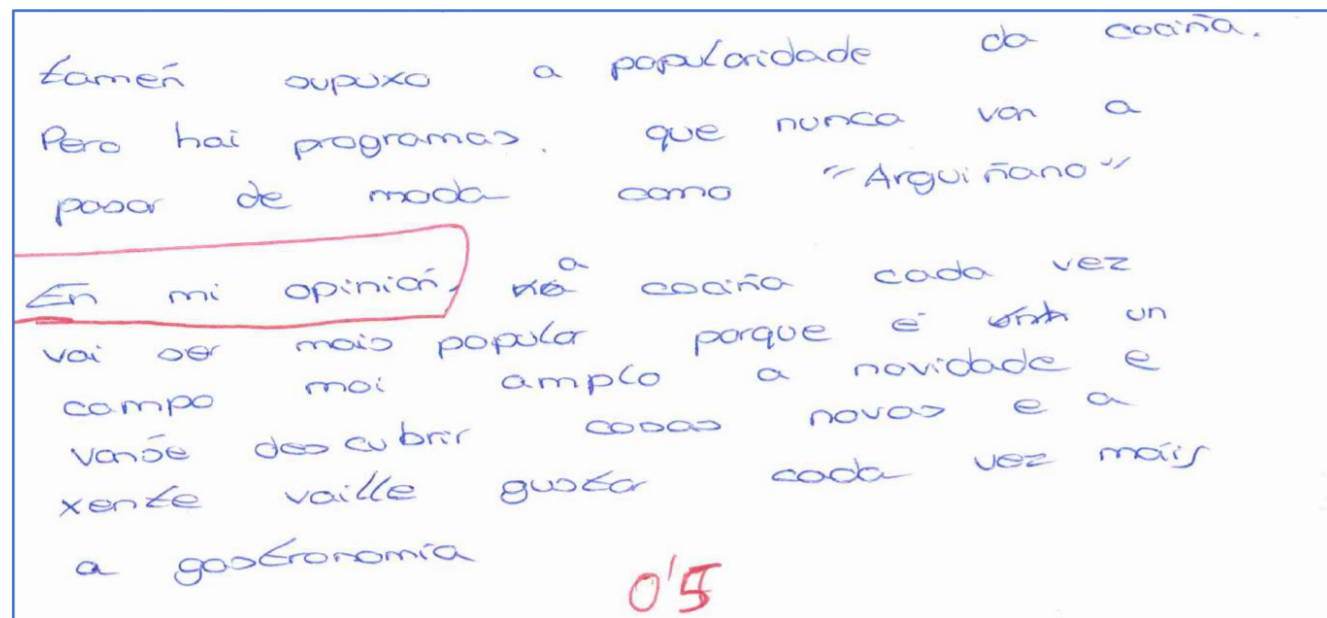 tamén supuxo a popularidade da cociña.
Pero hai programas. que nunca van a
pasar de moda como "Arguiñano"
En mi opinión, a cociña cada vez
vai ser mais popular porque é un
campo moi amplo a novidade e
vanse descubrir cosas novas e a
xente vaille gustar cada vez máis
a gastronomía
0'5